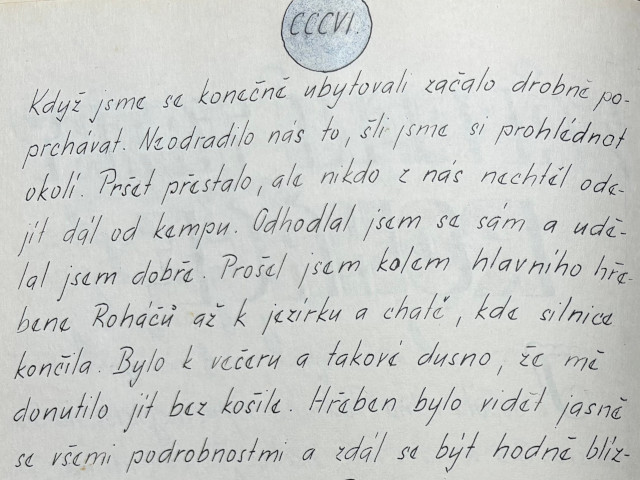 CCCVI.
Když jsme se konečně ubytovali začalo drobně po-
prchávat. Neodradilo nás to, šli jsme si prohlédnot
okolí. Pršet přestalo, ale nikdo z nás nechtěl ode-
jít dál od kempu. Odhodlal jsem se sám a udě-
lal jsem dobře. Prošel jsem kolem hlavního hře-
bene Roháčů až k jezírku a chatě, kde silnice
končila. Bylo k večeru a takové dusno, že mě
donutilo jít bez košile. Hřeben bylo vidět jasně
se všemi podrobnostmi a zdál se být hodně blíz-